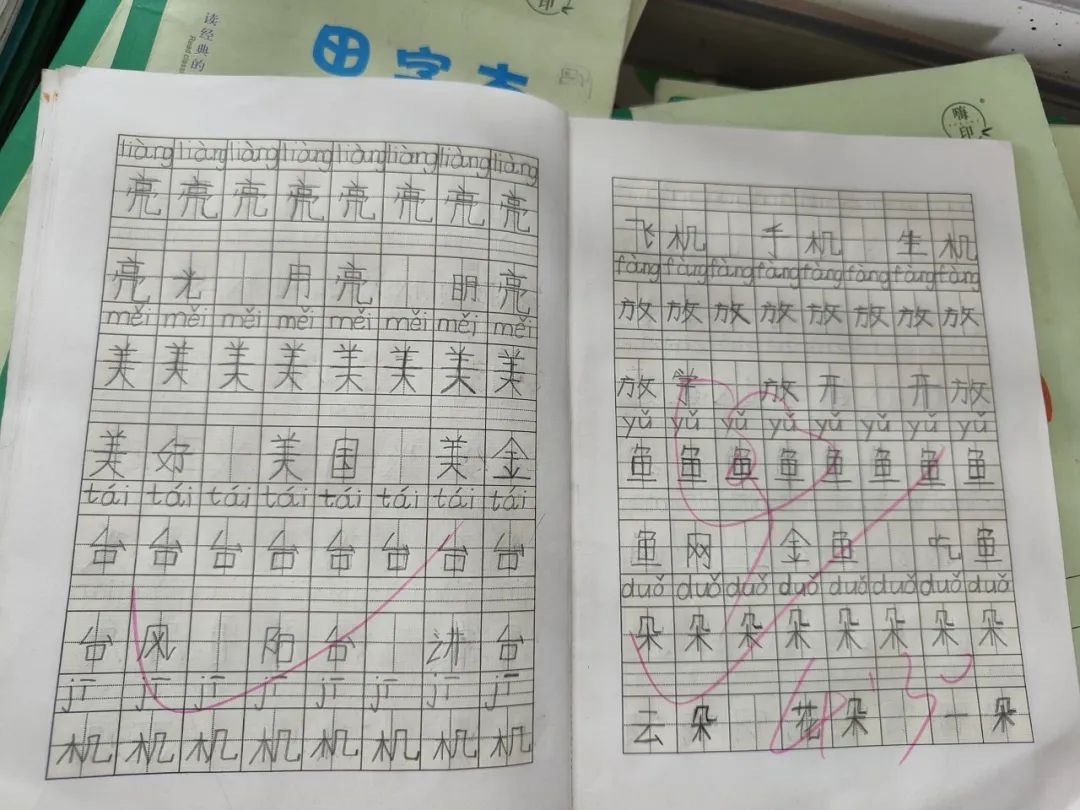 读经典的
田字本
嗨印
liàng liàng liàng liàng liàng liàng liàng liàng
亮 亮 亮 亮 亮 亮 亮 亮
亮 光 用 亮 明 亮
měi měi měi měi měi měi měi měi
美 美 美 美 美 美 美 美
美 好 美 国 美 金
tái tái tái tái tái tái tái tái
台 台 台 台 台 台 台 台
台 风 阳 台 讲 台
jī jī jī jī jī jī jī jī
机 机 机 机 机 机 机 机
飞 机 手 机 生 机
fàng fàng fàng fàng fàng fàng fàng fàng
放 放 放 放 放 放 放 放
放 学 放 开 开 放
yǔ yǔ yǔ yǔ yǔ yǔ yǔ yǔ
鱼 鱼 鱼 鱼 鱼 鱼 鱼 鱼
鱼 网 金 鱼 吃 鱼
duǒ duǒ duǒ duǒ duǒ duǒ duǒ duǒ
朵 朵 朵 朵 朵 朵 朵 朵
云 朵 花 朵 一 朵